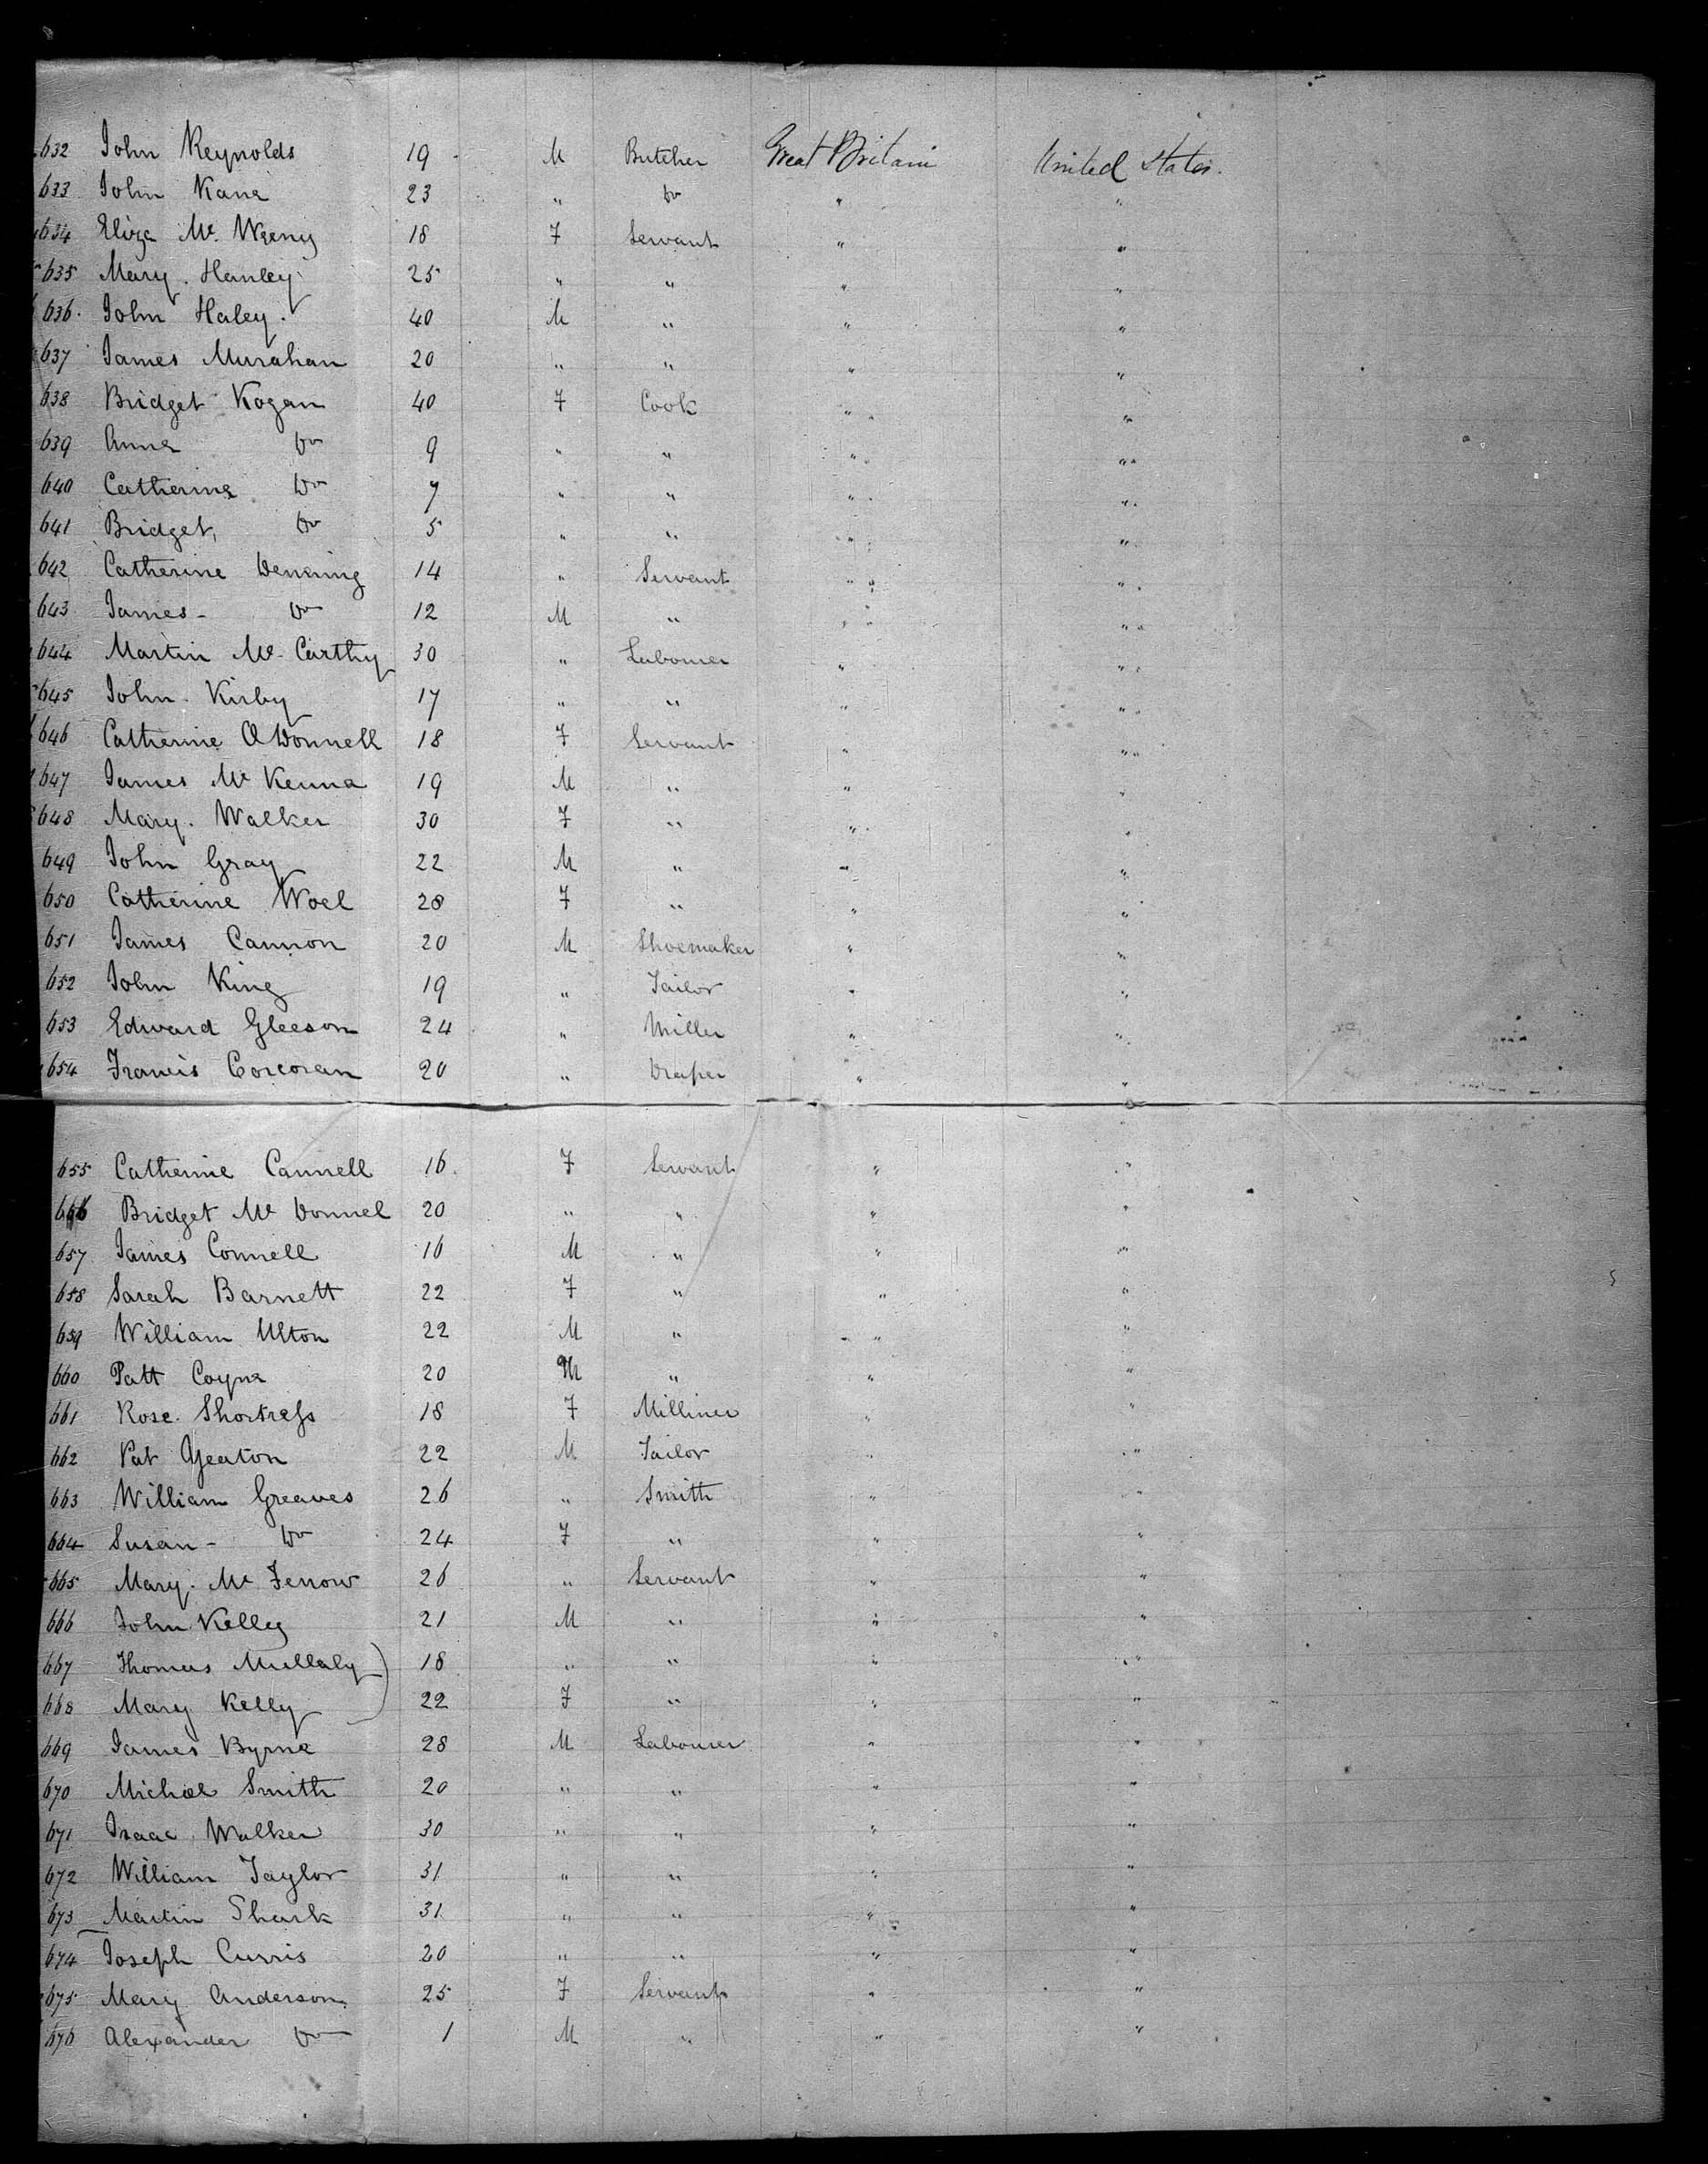 632 John Reynolds 19 M Butcher Great Britain United States.
633 John Kane 23 " Do " "
634 Eliza Mc. Weeny 18 F Servant " "
635 Mary. Hanley 25 " " " "
636. John Haley. 40 M " " "
637 James Murahan 20 " " " "
638 Bridget Kogan 40 F Cook " "
639 Anne Do 9 " " " "
640 Catherine Do 7 " " " "
641 Bridget, Do 5 " " " "
642 Catherine Denning 14 " Servant " "
643 James - Do 12 M " " "
644 Martin Mc. Carthy 30 " Labourer " "
645 John Kirby 17 " " " "
646 Catherine O Donnell 18 F Servant " "
647 James Mc Kenna 19 M " " "
648 Mary. Walker 30 F " " "
649 John Gray 22 M " " "
650 Catherine Woel 28 F " " "
651 James Cannon 20 M Shoemaker " "
652 John King 19 " Tailor " "
653 Edward Gleeson 24 " Miller " "
654 Francis Corcoran 20 " Draper " "
655 Catherine Cannell 16 F Servant " "
656 Bridget Mc Donnel 20 " " " "
657 James Connell 16 M " " "
658 Sarah Barnett 22 F " " "
659 William Ulton 22 M " " "
660 Patt Coyne 20 M " " "
661 Rose. Shortress 18 F Milliner " "
662 Pat Yeaton 22 M Tailor " "
663 William Greaves 26 " Smith " "
664 Susan - Do 24 F " " "
665 Mary. Mc Ferrow 26 " Servant " "
666 John Kelly 21 M " " "
667 Thomas Mullaly 18 " " " "
668 Mary Kelly 22 F " " "
669 James Byrne 28 M Labourer " "
670 Michael Smith 20 " " " "
671 Isaac Walker 30 " " " "
672 William Taylor 31 " " " "
673 Martin Shark 31 " " " "
674 Joseph Curris 20 " " " "
675 Mary Anderson 25 F Servant " "
676 Alexander Do 1 M " " "